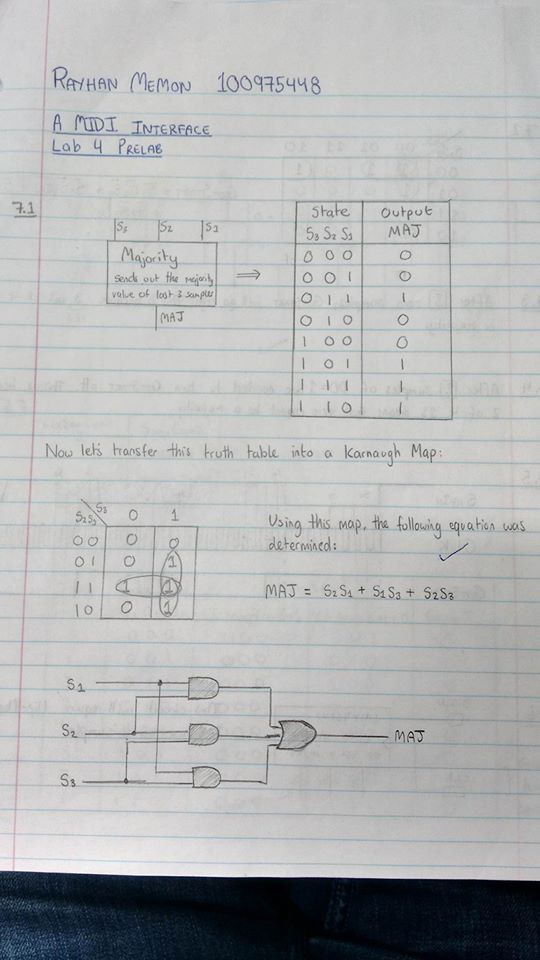 RAYHAN MEMON 100975448
A MIDI INTERFACE
LAB 4 PRELAB
7.1
S3 S2 S1
Majority
sends out the majority
value of last 3 samples
MAJ
⇒
State Output
S3 S2 S1 MAJ
0 0 0 0
0 0 1 0
0 1 1 1
0 1 0 0
1 0 0 0
1 0 1 1
1 1 1 1
1 1 0 1
Now let's transfer this truth table into a Karnaugh Map:
S2S1 S3 0 1
0 0 0 0
0 1 0 1
1 1 1 1
1 0 0 1
Using this map, the following equation was
determined:
MAJ = S2S1 + S1S3 + S2S3
S1
S2
S3
MAJ